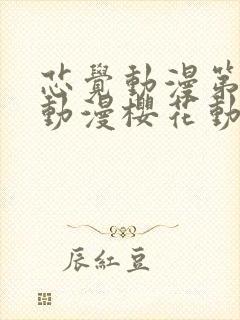 芯覺動漫第
動漫櫻花動
辰紅豆